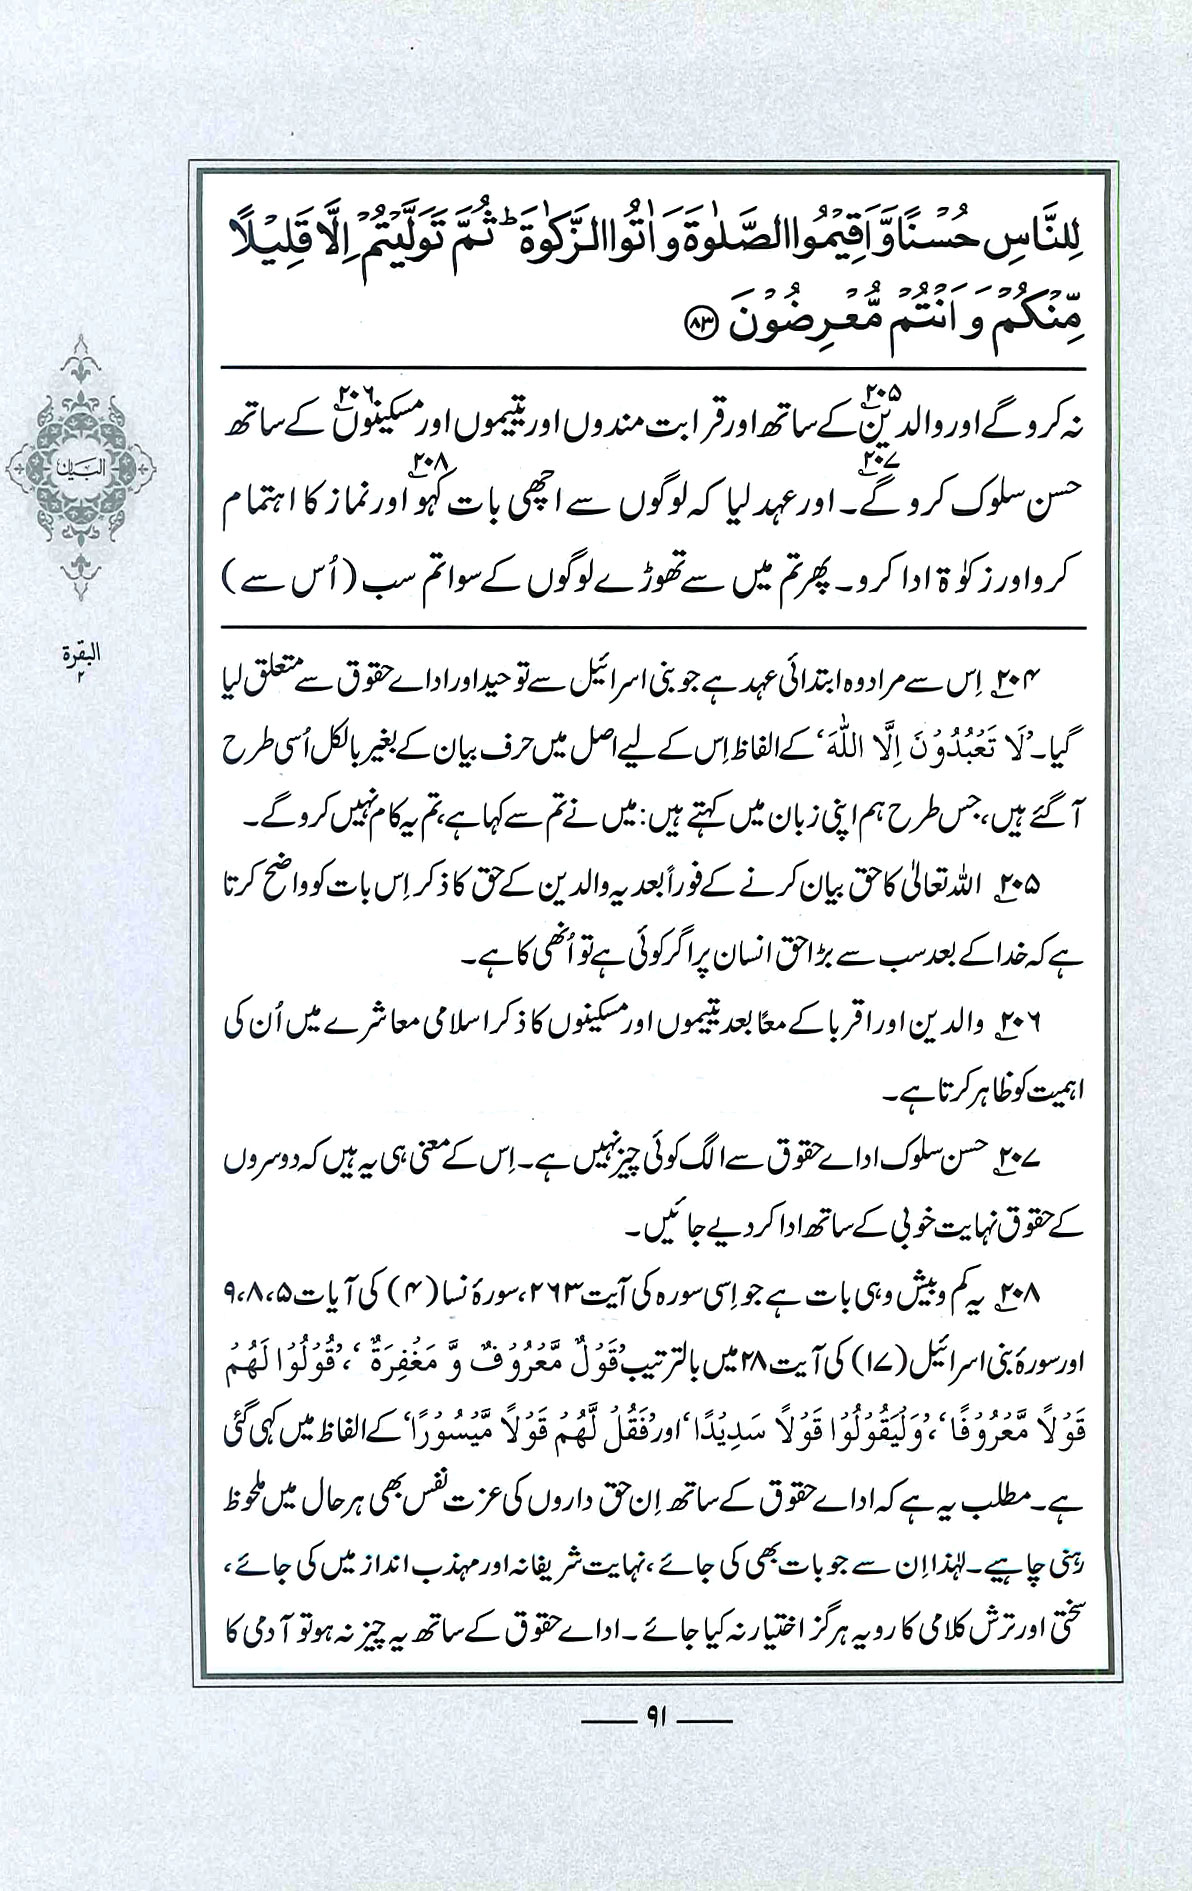 لِلنَّاسِ حُسْنًا وَّاَقِيْمُوا الصَّلٰوةَ وَاٰتُوا الزَّكٰوةَ ؕ ثُمَّ تَوَلَّيْتُمْ اِلَّا قَلِيْلًا
مِّنْكُمْ وَاَنْتُمْ مُّعْرِضُوْنَ ﴿۸۳﴾
نہ کرو گے اور والدین۲۰۵ کے ساتھ اور قرابت مندوں اور یتیموں اور مسکینوں۲۰۶ کے ساتھ
حسن سلوک کرو گے۲۰۷۔ اور عہد لیا کہ لوگوں سے اچھی بات کہو۲۰۸ اور نماز کا اہتمام
کرو اور زکوٰۃ ادا کرو۔ پھر تم میں سے تھوڑے لوگوں کے سوا تم سب (اُس سے)
البیان
البقرة
۲
۲۰۴ اِس سے مراد وہ ابتدائی عہد ہے جو بنی اسرائیل سے توحید اور اداے حقوق سے متعلق لیا
گیا۔ 'لَا تَعْبُدُوْنَ اِلَّا اللّٰهَ' کے الفاظ اِس کے لیے اصل میں حرف بیان کے بغیر بالکل اُسی طرح
آ گئے ہیں، جس طرح ہم اپنی زبان میں کہتے ہیں: میں نے تم سے کہا ہے، تم یہ کام نہیں کرو گے۔
۲۰۵ اللہ تعالیٰ کا حق بیان کرنے کے فوراً بعد یہ والدین کے حق کا ذکر اِس بات کو واضح کرتا
ہے کہ خدا کے بعد سب سے بڑا حق انسان پر اگر کوئی ہے تو اُنھی کا ہے۔
۲۰۶ والدین اور اقربا کے معاً بعد یتیموں اور مسکینوں کا ذکر اسلامی معاشرے میں اُن کی
اہمیت کو ظاہر کرتا ہے۔
۲۰۷ حسن سلوک اداے حقوق سے الگ کوئی چیز نہیں ہے۔ اِس کے معنی ہی یہ ہیں کہ دوسروں
کے حقوق نہایت خوبی کے ساتھ ادا کر دیے جائیں۔
۲۰۸ یہ کم و بیش وہی بات ہے جو اِسی سورہ کی آیت ۲۶۳، سورۂ نسا (۴) کی آیات ۵، ۸، ۹
اور سورۂ بنی اسرائیل (۱۷) کی آیت ۲۸ میں بالترتیب 'قَوْلٌ مَّعْرُوْفٌ وَّ مَغْفِرَةٌ'، 'قُوْلُوْا لَهُمْ
قَوْلًا مَّعْرُوْفًا'، 'وَلْيَقُوْلُوْا قَوْلًا سَدِيْدًا' اور 'فَقُلْ لَّهُمْ قَوْلًا مَّيْسُوْرًا' کے الفاظ میں کہی گئی
ہے۔ مطلب یہ ہے کہ اداے حقوق کے ساتھ اِن حق داروں کی عزت نفس بھی ہر حال میں ملحوظ
رہنی چاہیے۔ لہٰذا اِن سے جو بات بھی کی جائے، نہایت شریفانہ اور مہذب انداز میں کی جائے،
سختی اور ترش کلامی کا رویہ ہرگز اختیار نہ کیا جائے۔ اداے حقوق کے ساتھ یہ چیز نہ ہو تو آدمی کا
۹۱